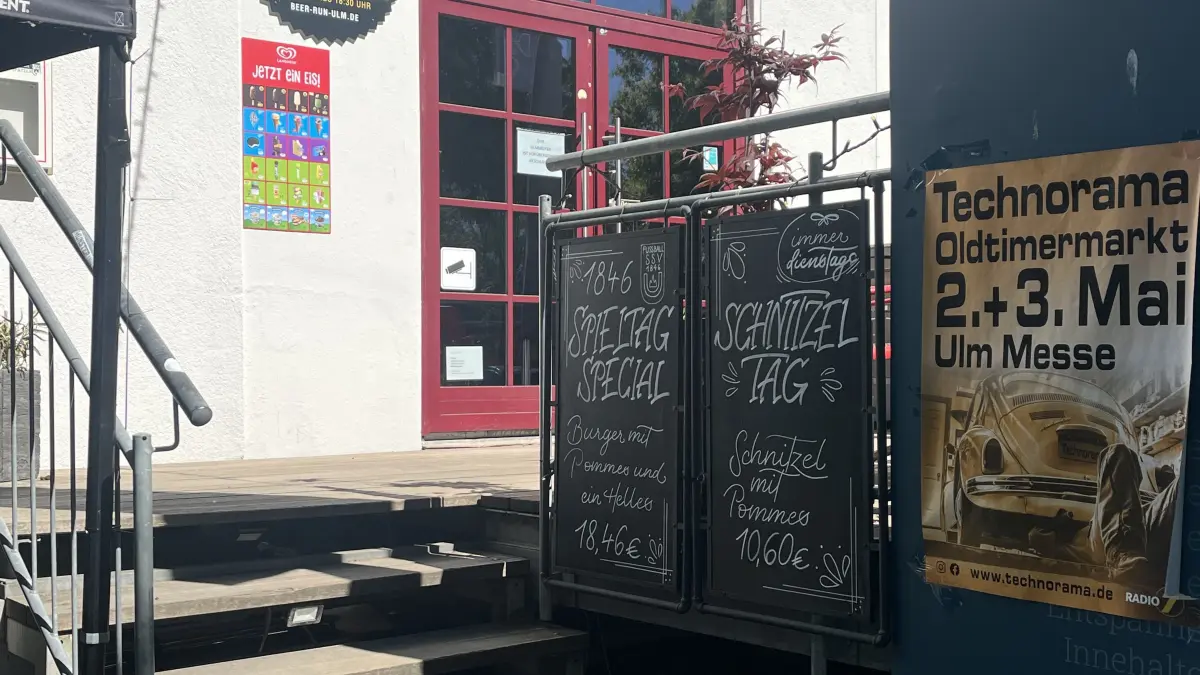 ENT.
18:30 UHR
BEER-RUN-ULM.DE
JETZT EIN EIS!
1846
FUSSBALL
SSV
1846
SPIELTAG
SPECIAL
Burger mit
Pommes und
ein Helles
18,46€
immer
dienstags
SCHNITZEL
TAG
Schnitzel
mit
Pommes
10,60€
Technorama
Oldtimermarkt
2.+3. Mai
Ulm Messe
Technorama
www.technorama.de
RADIO 7
Entspannen
Innehalten